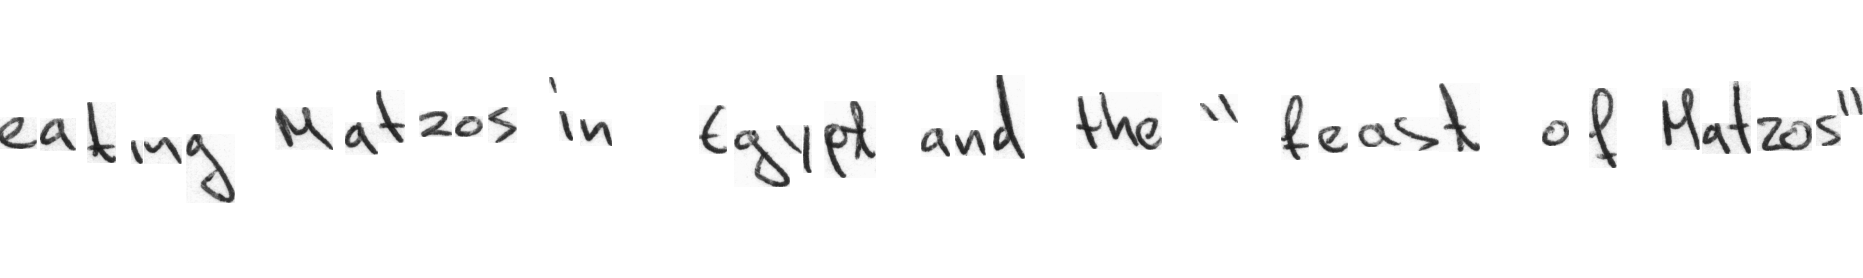 eating Matzos in Egypt and the "feast of Matzos"